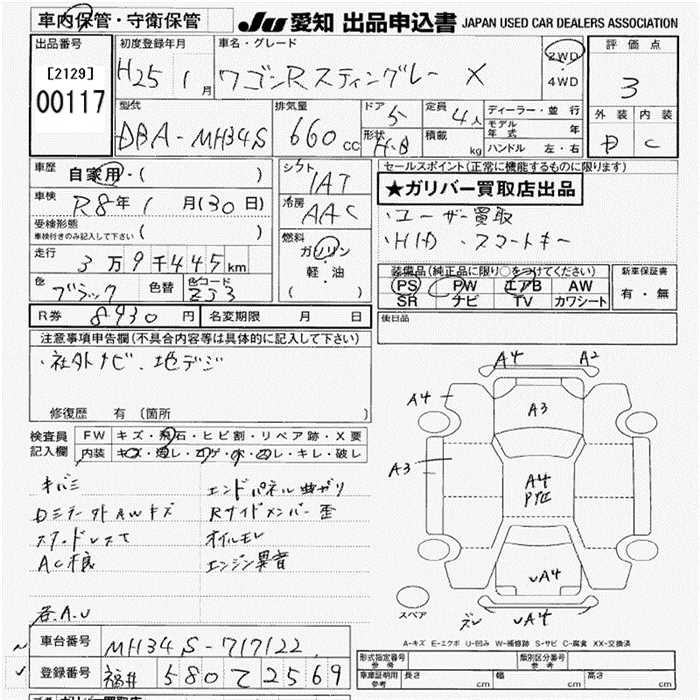 車内保管・守衛保管
JU 愛知 出品申込書 JAPAN USED CAR DEALERS ASSOCIATION
出品番号
[2129]
00117
初度登録年月
H25 1月
車名・グレード
ワゴンR スティングレー X
2WD
・
4WD
評価点
3
外装 内装
D C
型式
DBA-MH34S
排気量
660cc
ドア
5
形状
H.B
定員
4人
積載
kg
ディーラー・並行
モデル年式 年
ハンドル 左・右
車歴
自家用・( )
車検
R8年1月(30日)
受検形態
車検付きのみ記入して下さい ( )
走行
3万9千445km
色
ブラック
色替
色コード
ZJ3
シフト
IAT
冷房
AAC
燃料
ガソリン
軽・油
( )
セールスポイント(正常に機能するものに限ります)
★ガリバー買取店出品
・ユーザー買取
・HID・スマートキー
装備品(純正品に限り○をつけてください)
PS PW エアB AW
SR ナビ TV カワシート
新車保証書
有・無
R券 8930円
名変期限 月 日
後日品
注意事項申告欄(不具合内容等は具体的に記入して下さい)
・社外ナビ.地デジ
修復歴 有 (箇所 )
検査員
記入欄
FW キズ・飛石・ヒビ割・リペア跡・X要
内装 キズ・汚レ・コゲ・穴・スレ・キレ・破レ
キバミ
エンドパネル曲ガリ
Rサイドメンバー歪
オイルモレ
エンジン異音
各A.U
A4 A2
A4
A3
A3
A4
P凹
UA4
UA4
スペア
A-キズ E-エクボ U-凹み W-補修跡 S-サビ C-腐食 XX-交換済
車台番号 MH34S-717122
登録番号 福井 580 て 2569
形式指定番号
参考
類別区分番号
参考
車庫証明用
参考
長さ cm 幅 cm 高さ cm
ガリバー買取店